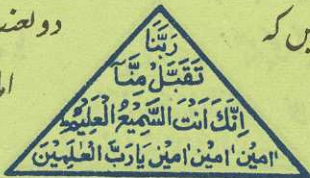 یں کہ
دو لعنت
رَبَّنَا
تَقَبَّلْ مِنَّآ
اِنَّكَ اَنْتَ السَّمِيْعُ الْعَلِيْمُ
امین امین امین یَا رَبَّ الْعٰلَمِیْنَ